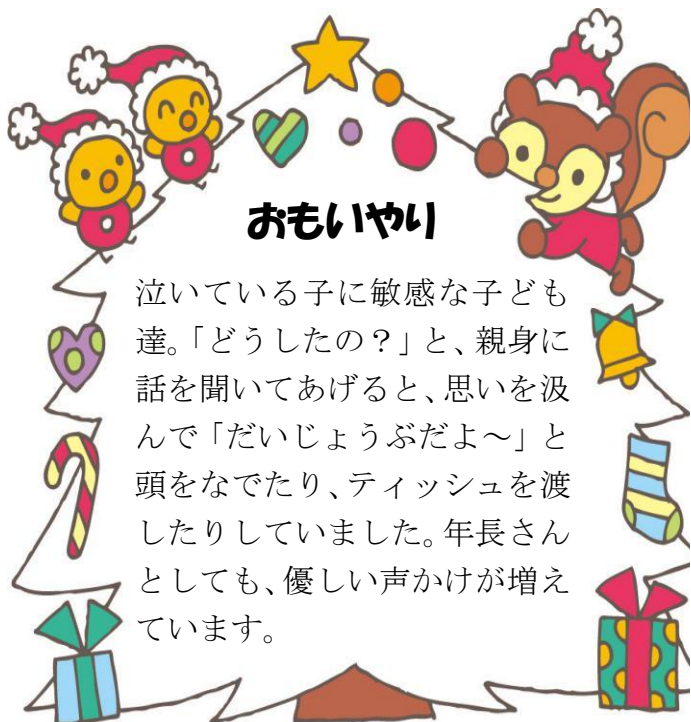 おもいやり
泣いている子に敏感な子ども
達。「どうしたの？」と、親身に
話を聞いてあげると、思いを汲
んで「だいじょうぶだよ～」と
頭をなでたり、ティッシュを渡
したりしていました。年長さん
としても、優しい声かけが増え
ています。